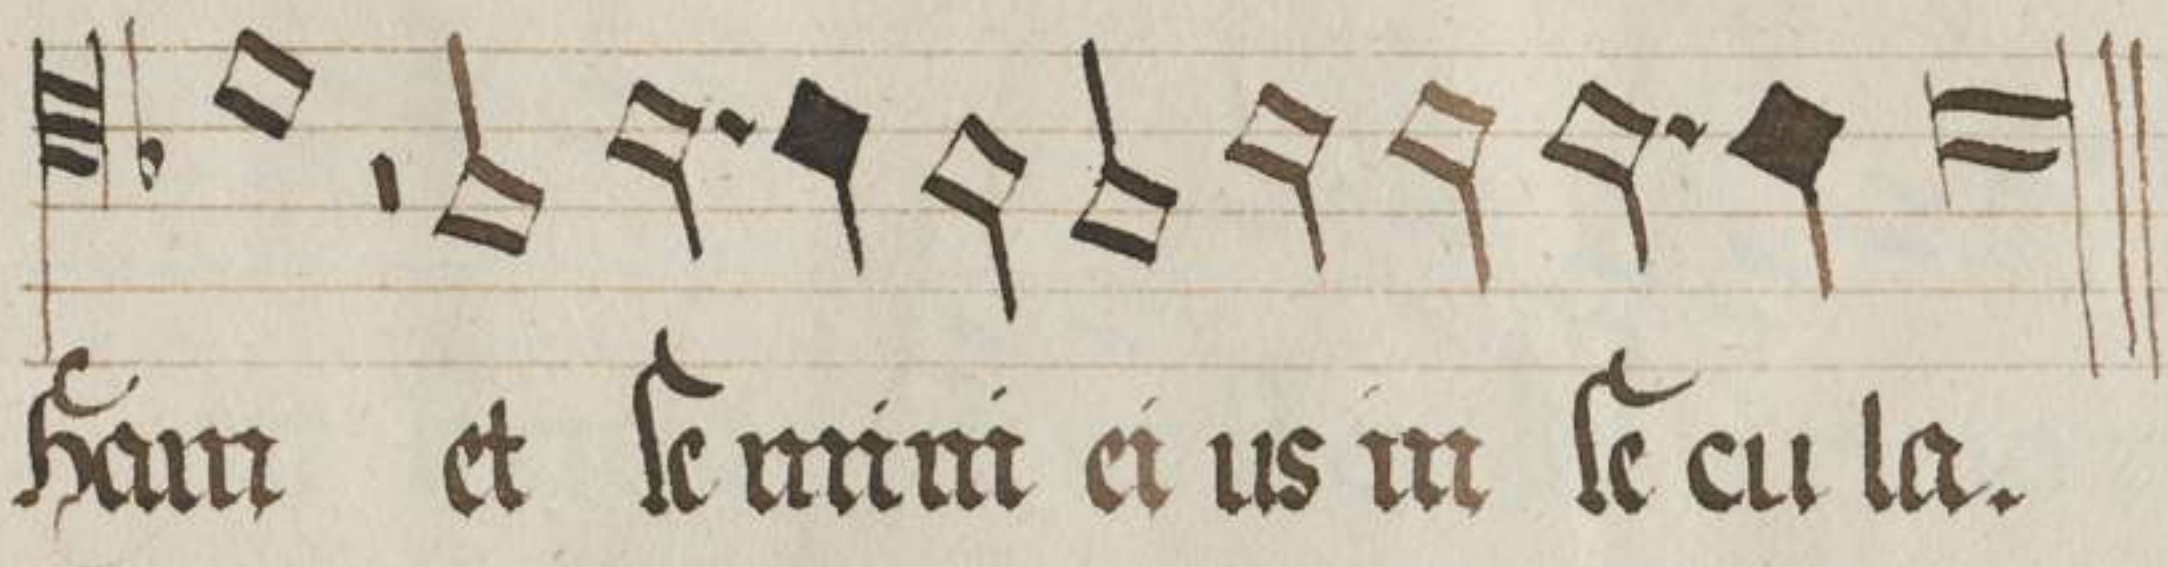 ham et se mini ei us in se cu la.